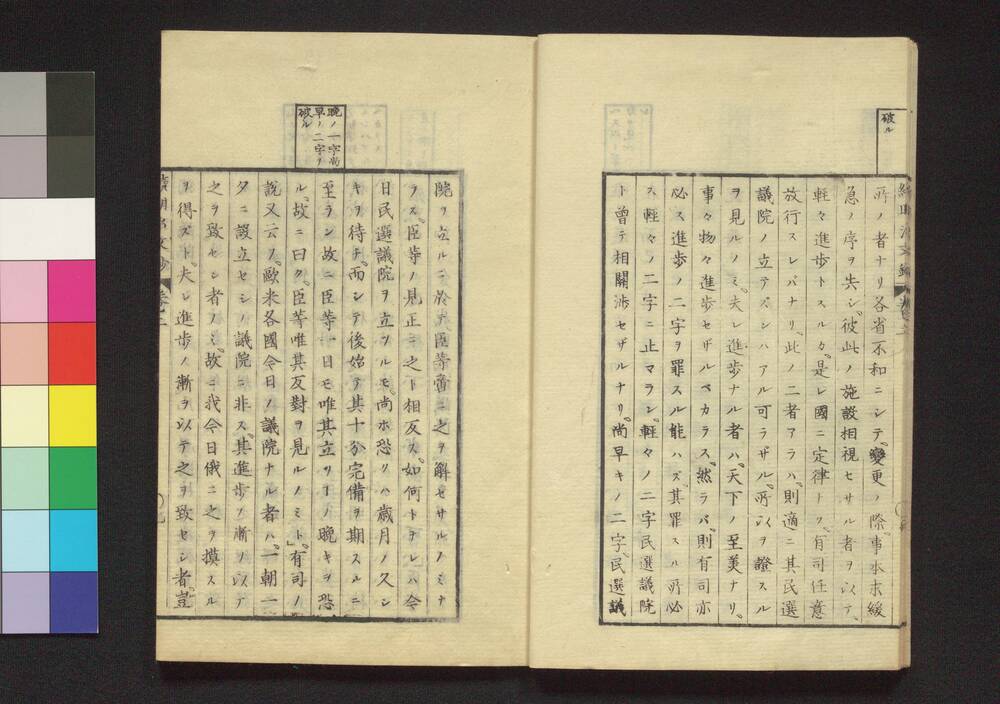 破ル
所ノ者ナリ各省不和ニシテ變更ノ際事本末緩
急ノ序ヲ失シ彼此ノ施設相視セサル者ヲ以テ
輕々進歩トスルカ是レ國ニ定律ナク有司任意
放行スレバナリ此ノ二者アラハ則適ニ其民選
議院ノ立テズンハアル可ラザル所以ヲ證スル
ヲ見ルノミ夫レ進歩ナル者ハ天下ノ至美ナリ
事々物々進歩セザルベカラス然ラバ則有司亦
必ス進歩ノ二字ヲ罪スル能ハズ其罪スル所必
ス輕々ノ二字ニ止マラン輕々ノ二字民選議院
ト曾テ相關渉セザルナリ尚早キノ二字民選議
晩ノ一字尚
早ノ二字ヲ
破ル
院ヲ立ルニ於テ臣等啻ニ之ヲ解セサルノミナ
ラス臣等ノ見正ニ之ト相反ス如何トナレハ今
日民選議院ヲ立ツルモ尚ホ恐クハ歳月ノ久シ
キヲ待チ而シテ後始テ其十分完備ヲ期スルニ
至ラン故ニ臣等一日モ唯其立ツヿノ晩キヲ恐
ル故ニ曰ク臣等唯其反對ヲ見ルノミト有司ノ
説又云フ歐米各國今日ノ議院ナル者ハ一朝一
夕ニ設立セシノ議院ニ非ス其進歩ノ漸ヲ以テ
之ヲ致セシ者ノミ故ニ我今日俄ニ之ヲ摸スル
ヲ得ズト夫レ進歩ノ漸ヲ以テ之ヲ致セシ者豈